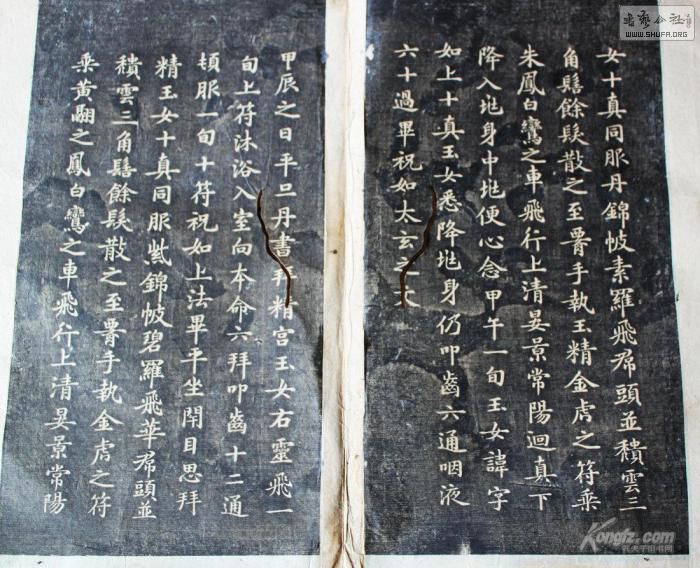 書藝公社
WWW.SHUFA.ORG
女十真同服丹錦帔素羅飛帬頭並穨雲三
角髻餘髮散之至腰手執玉精金虎之符乘
朱鳳白鸞之車飛行上清晏景常陽迴真下
降入兆身中兆便心念甲午一旬玉女諱字
如上十真玉女悉降兆身仍叩齒六通咽液
六十過畢祝如太玄之文
甲辰之日平旦丹書拜精宮玉女右靈飛一
旬上符沐浴入室向本命六拜叩齒十二通
頓服一旬十符祝如上法畢平坐閉目思拜
精玉女十真同服紫錦帔碧羅飛華帬頭並
穨雲三角髻餘髮散之至腰手執金虎之符
乘黃翮之鳳白鸞之車飛行上清晏景常陽
Kongfz.com
孔夫子旧书网